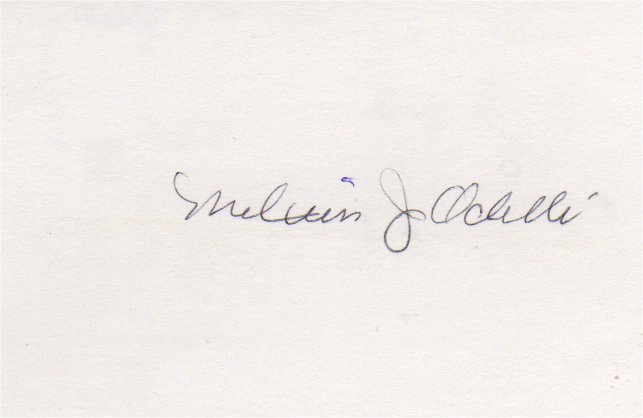 Melvin J Odelli